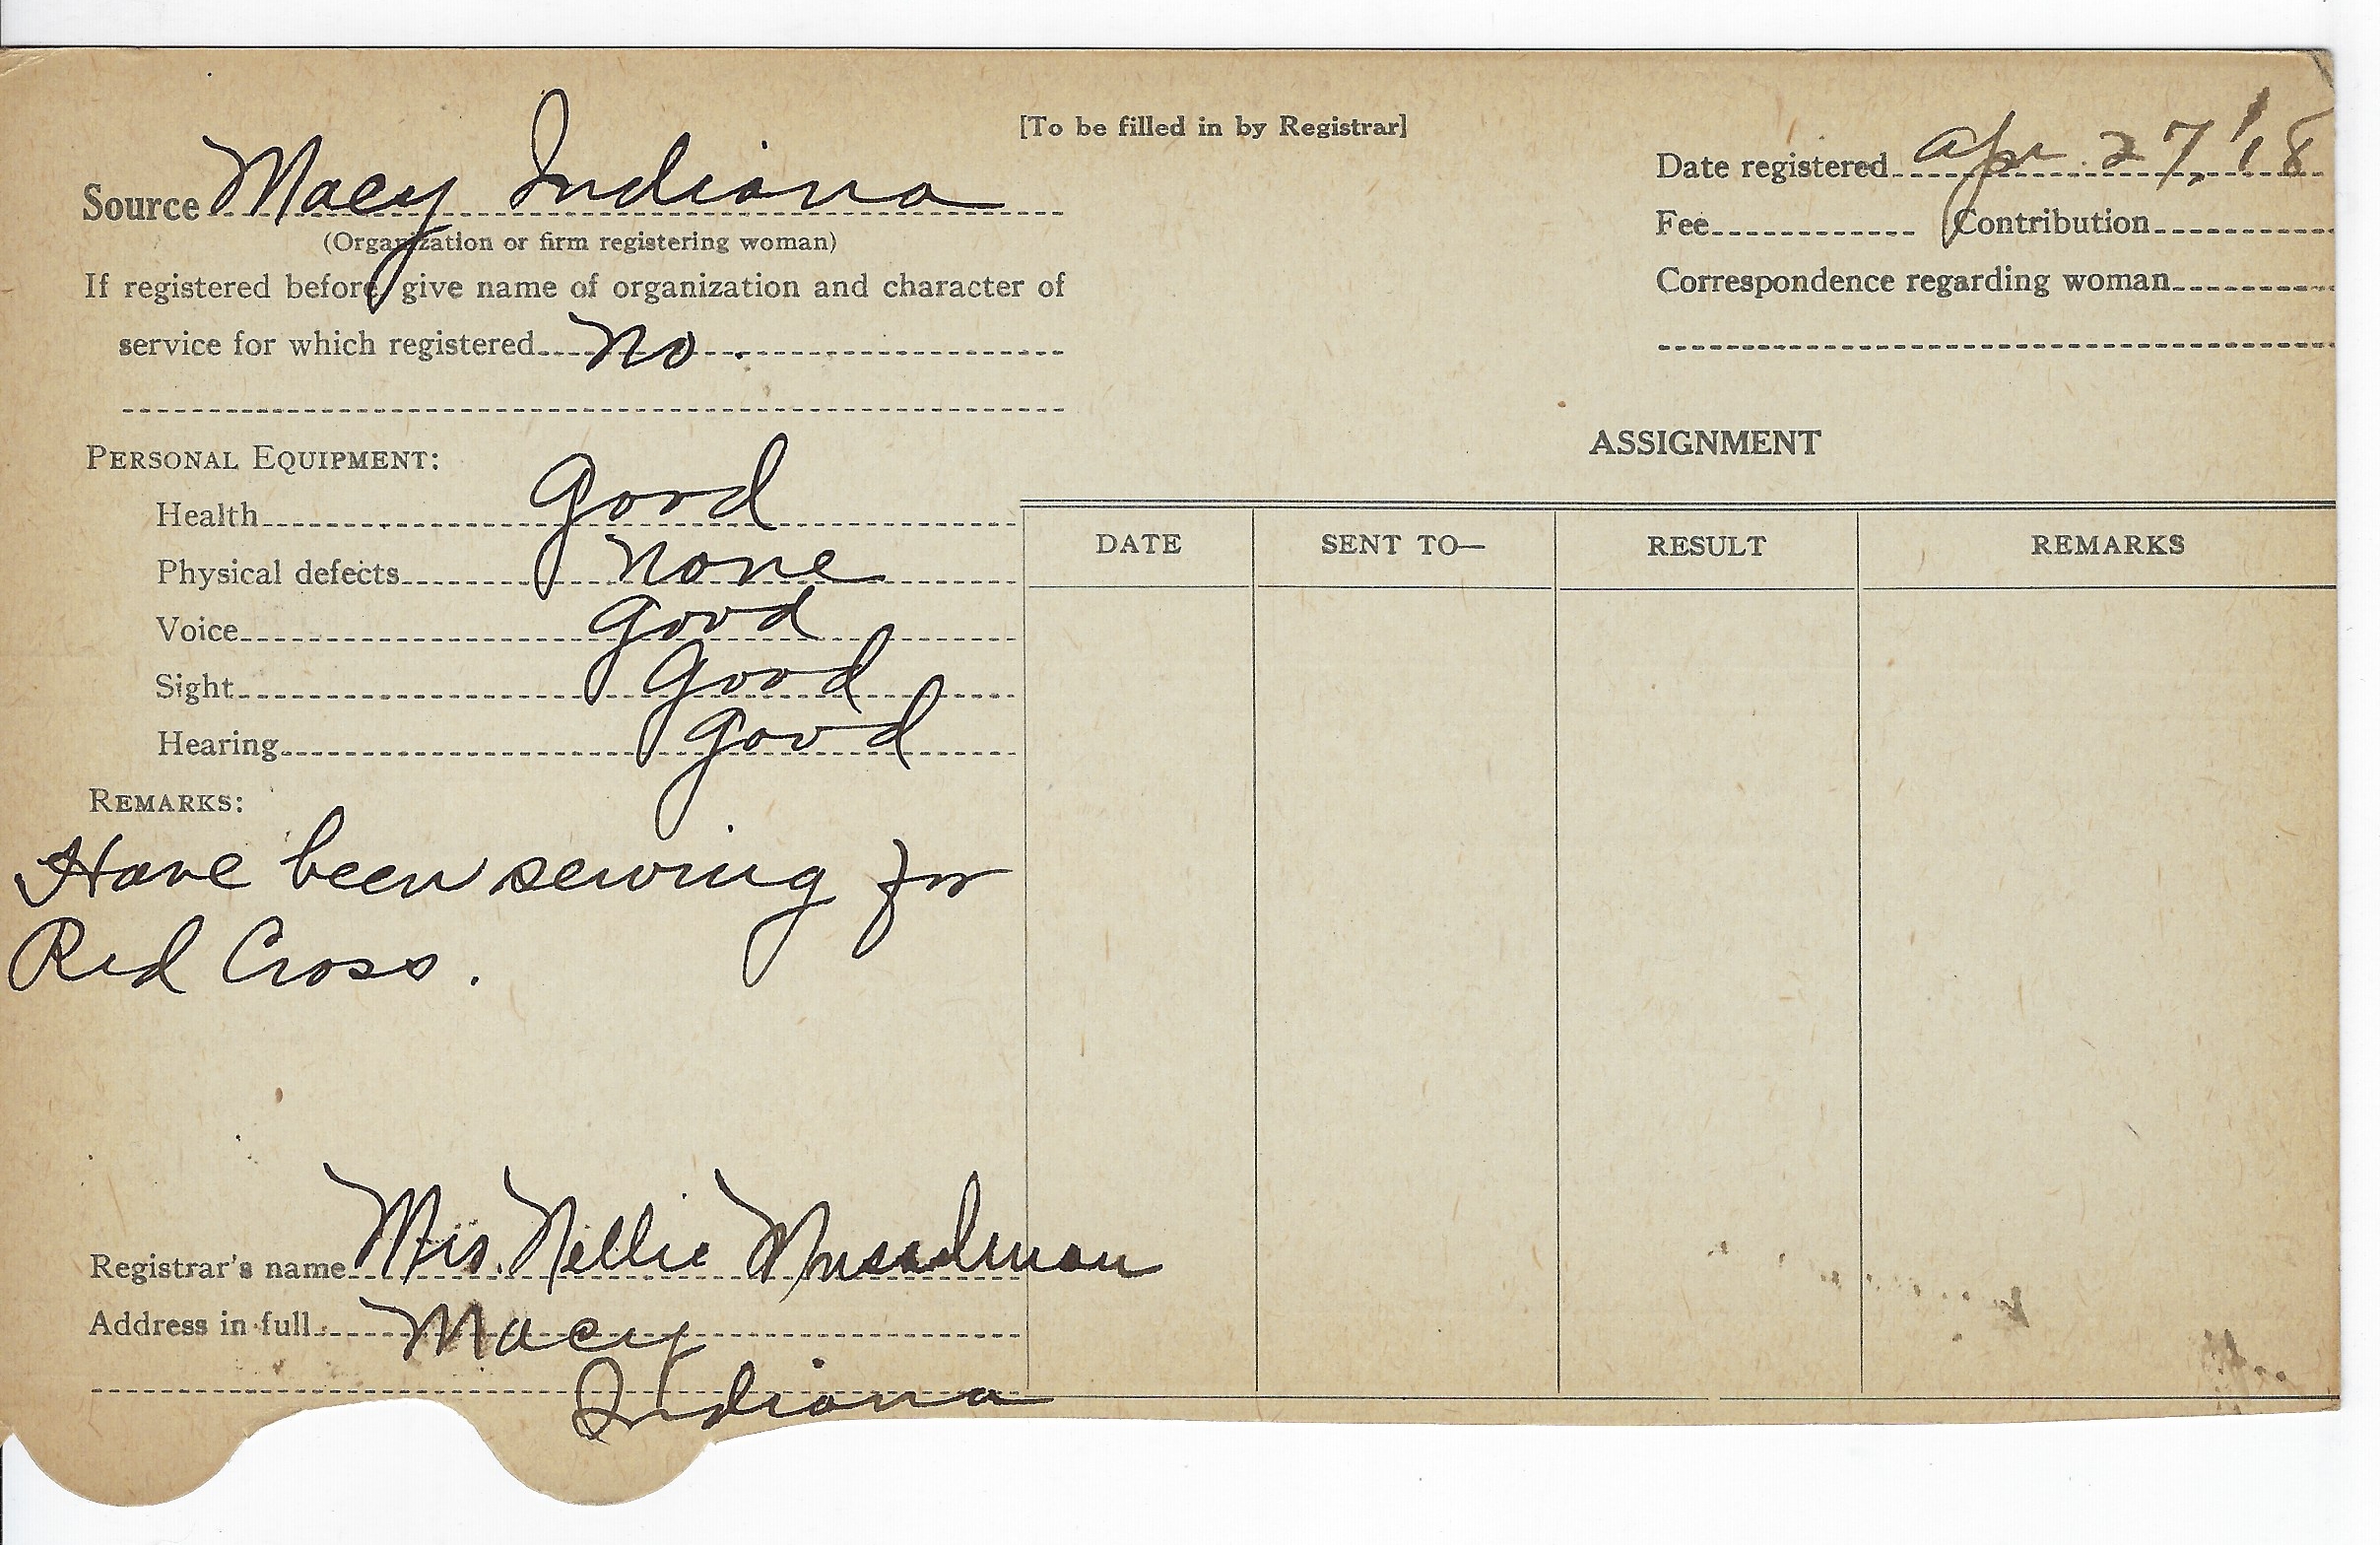 [To be filled in by Registrar]
Source Macy Indiana
(Organization or firm registering woman)
If registered before, give name of organization and character of
service for which registered No.
Date registered Apr 27, '18
Fee Contribution
Correspondence regarding woman
PERSONAL EQUIPMENT:
Health Good
Physical defects None
Voice Good
Sight Good
Hearing Good
REMARKS:
Have been sewing for
Red Cross.
Registrar's name Mrs. Nellie Musselman
Address in full Macy
Indiana
ASSIGNMENT
DATE SENT TO— RESULT REMARKS